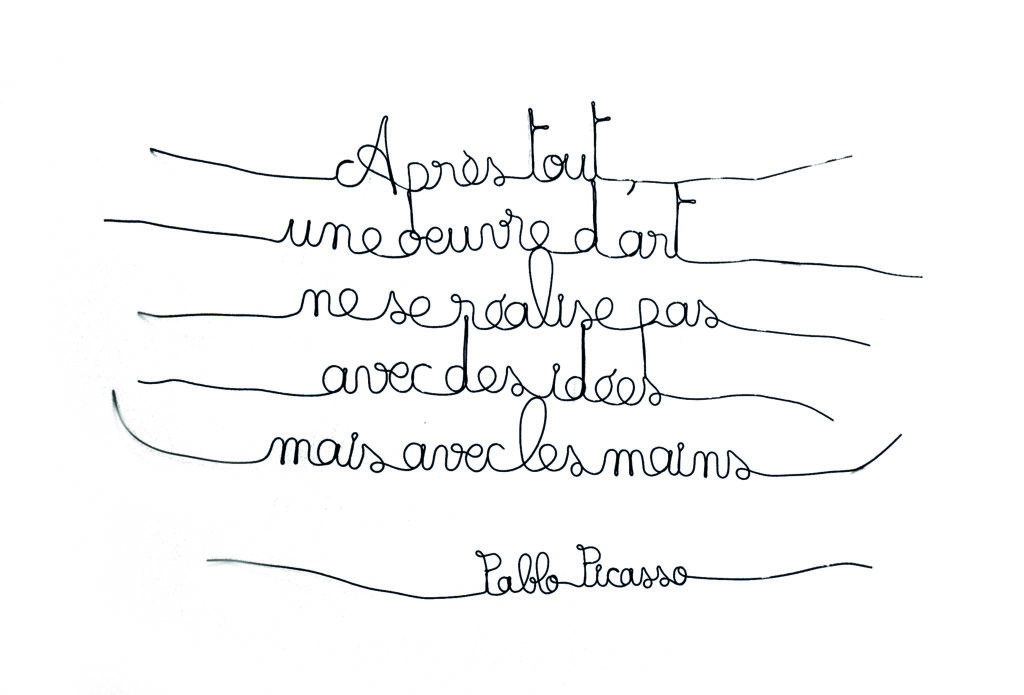 Après tout,
une oeuvre d'art
ne se réalise pas
avec des idées
mais avec les mains
Pablo Picasso